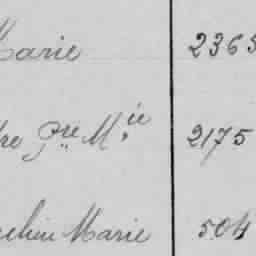 Marie 2365
re Pre Mie 2175
uelin Marie 504